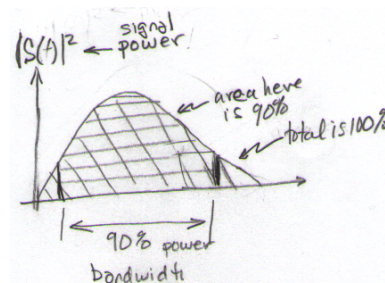 signal
|S(f)|² ← power
area here
is 90%
total is 100%
90% power
bandwidth